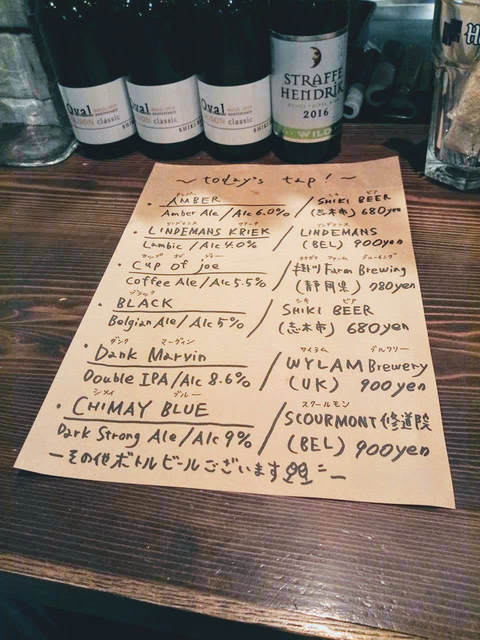 Oval
SAISON classic
Oval
classic
Oval
classic
STRAFFE
HENDRIK
2016
WILD
H
~ today's tap! ~
アンバー
・AMBER
Amber Ale / Alc 6.0%
シキ ビア
SHIKI BEER
(志木市) 680yen
リンデマンス クリーク
・LINDEMANS KRIEK
Lambic / Alc 4.0%
LINDEMANS
(BEL) 900yen
カップ オブ ジョー
・Cup of joe
Coffee Ale / Alc 5.5%
カケガワ ファーム ブルーイング
掛川Farm Brewing
(静岡県) 780yen
ブラック
・BLACK
Belgian Ale / Alc 5%
シキ ビア
SHIKI BEER
(志木市) 680yen
ダンク マーヴィン
・Dank Marvin
Double IPA / Alc 8.6%
ワイラム ブルワリー
WYLAM Brewery
(UK) 900yen
シメイ ブルー
・CHIMAY BLUE
Dark Strong Ale / Alc 9%
スクールモン
SCOURMONT 修道院
(BEL) 900yen
ーその他ボトルビールございますー